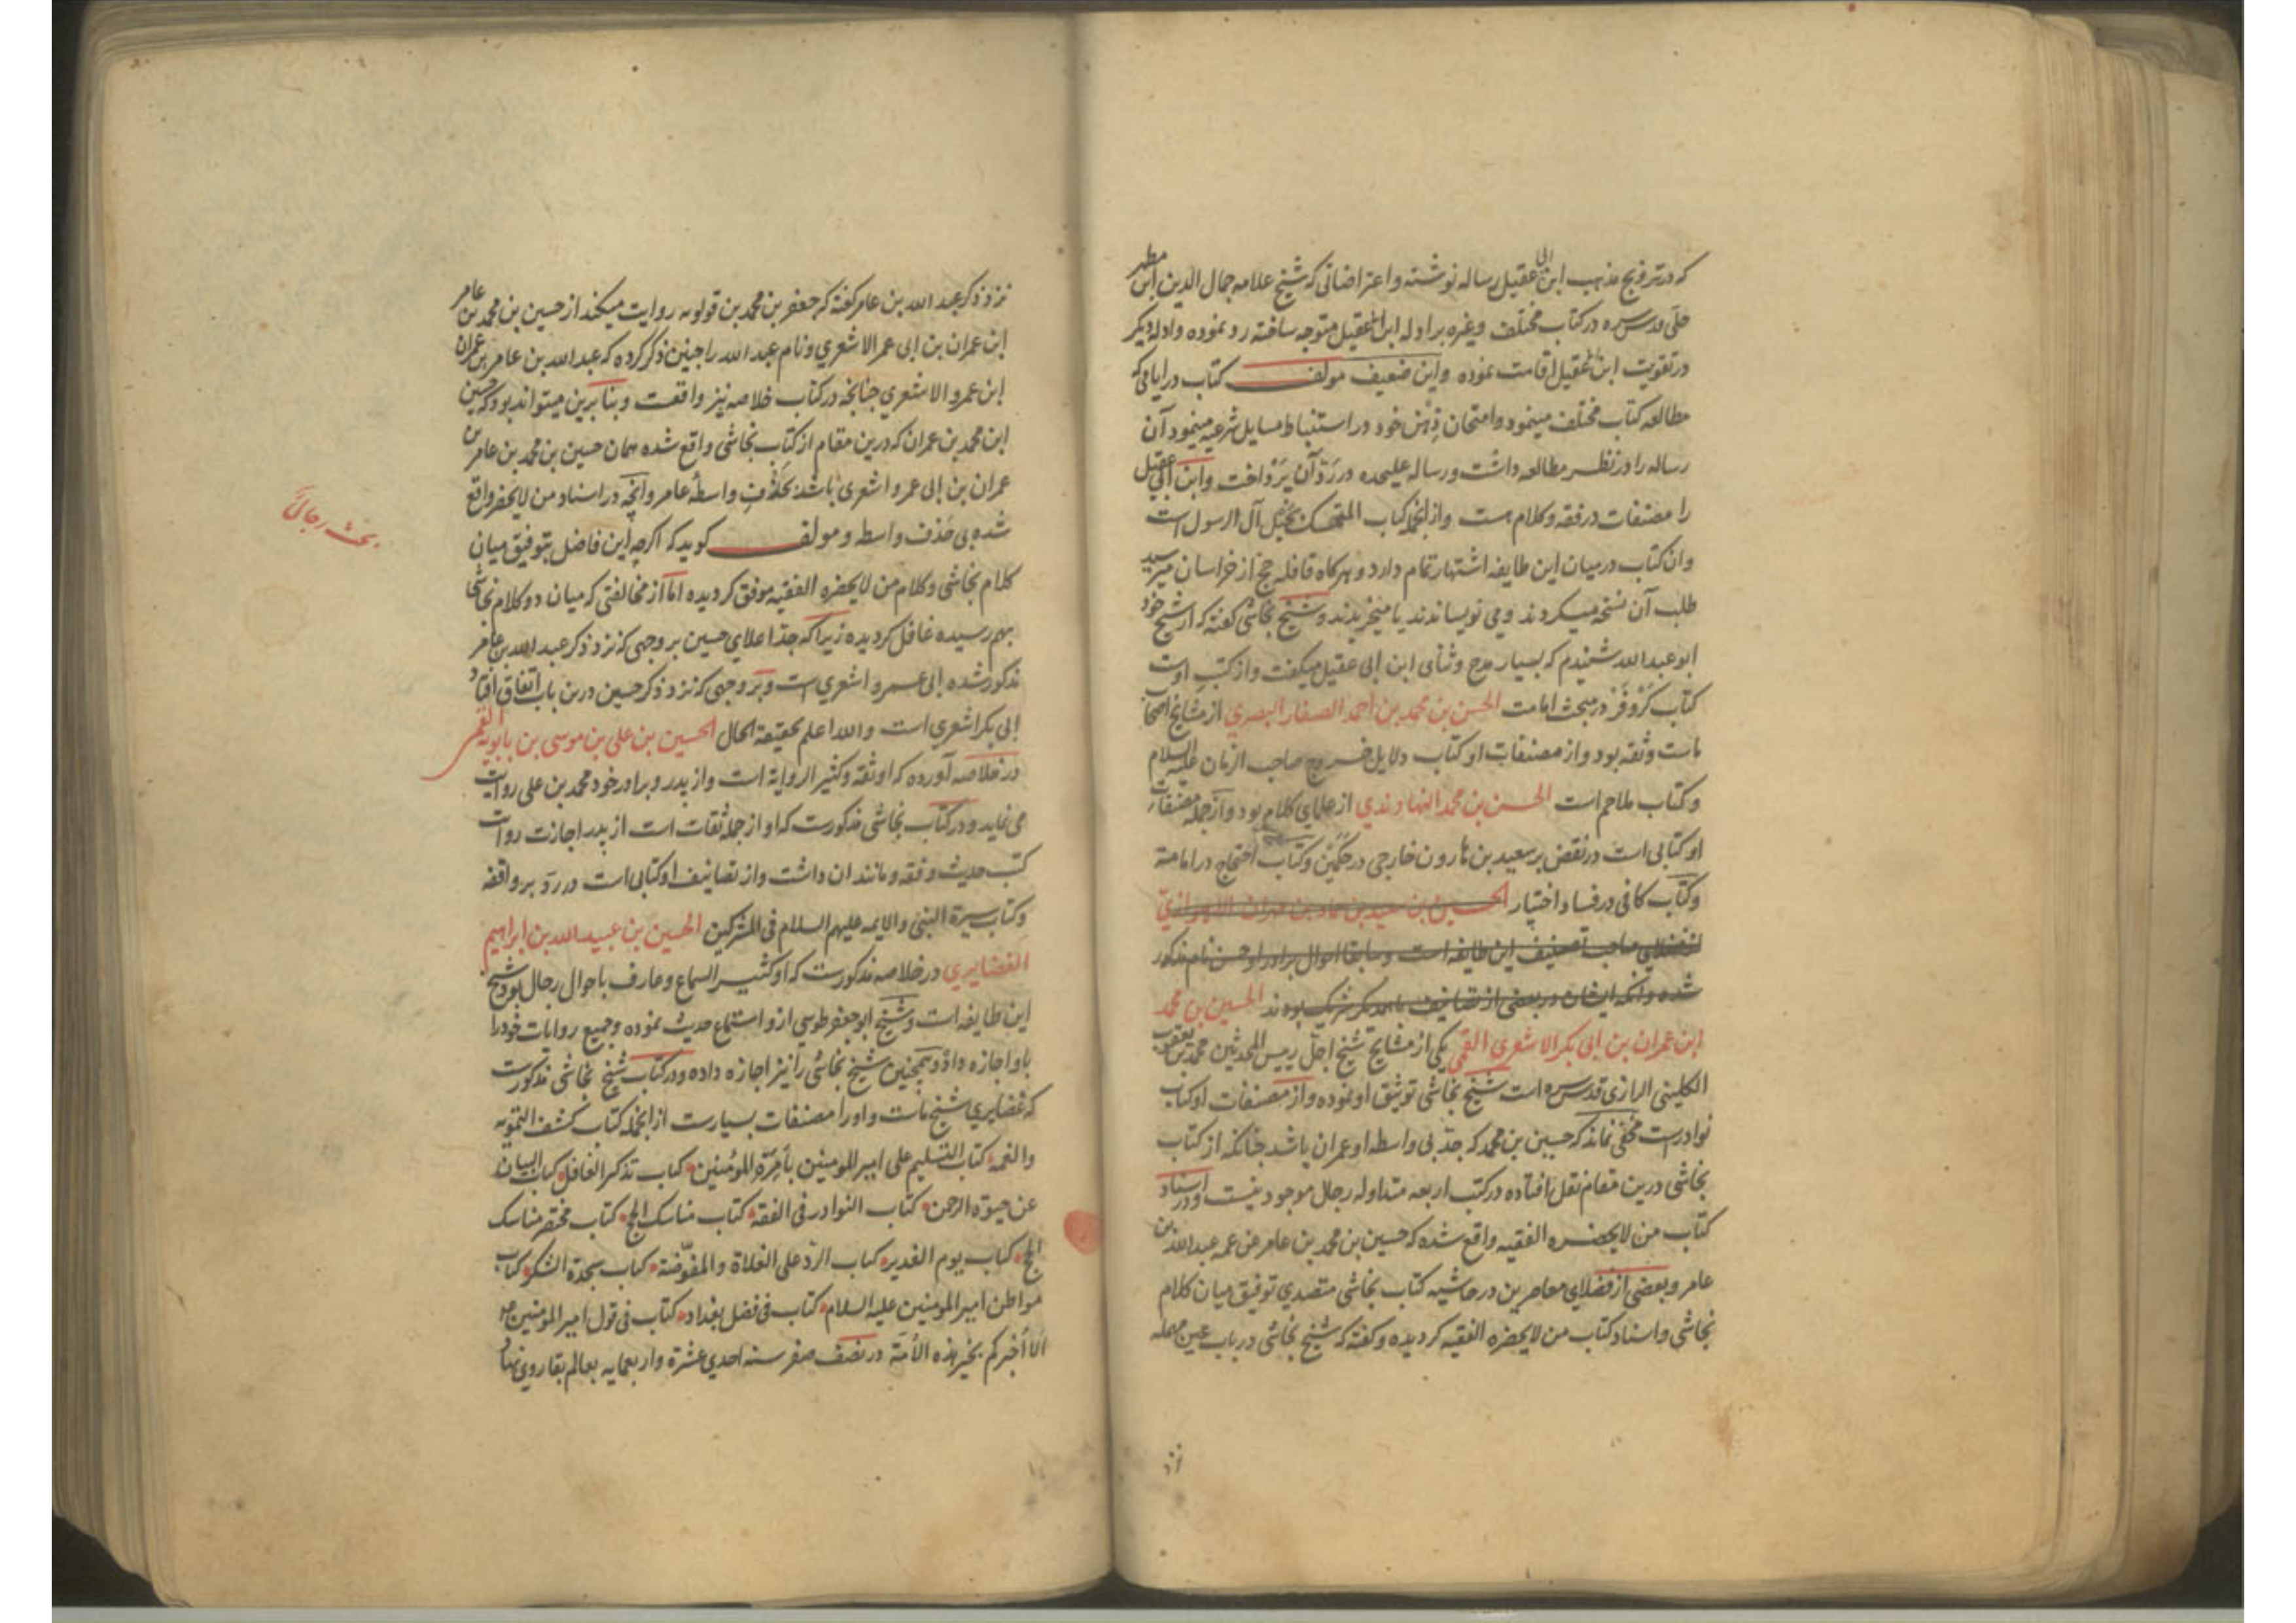 که در ترویج مذهب ابن ابی عقیل رساله نوشته و اعتراضاتی که شیخ علامه جمال الدین ابن مطهر
حلی قدس سره در کتاب مختلف وغیره بر ادله ابن ابی عقیل متوجه ساخته رد نموده و ادله دیگر
در تقویت ابن ابی عقیل اقامت نموده و این ضعیف مولف کتاب در ایامی که
مطالعه کتاب مختلف مینمود و امتحان ذهن خود در استنباط مسایل شرعیه مینمود آن
رساله را در نظر مطالعه داشت و رساله علیحده در رد آن پرداخت و ابن ابی عقیل
را مصنفات در فقه و کلام هست و از انجمله کتاب المتمسک بحبل آل الرسول است
وان کتاب در میان این طایفه اشتهار تمام دارد و هرکاه قافله حج از خراسان میرسید
طلب آن نسخه میکردند و می نویساندند یا میخریدند و شیخ نجاشی کفته که از شیخ خود
ابو عبدالله شنیدم که بسیار مدح و ثنای ابن ابی عقیل میکفت و از کتب اوست
کتاب کر و فر در مبحث امامت الحسن بن محمد بن احمد الصفار البصری از مشایخ اصحاب
ماست وثقه بود و از مصنفات او کتاب دلایل خروج صاحب الزمان علیه السلام
و کتاب ملاحم است الحسن بن محمد النهاوندی از علمای کلام بود و از جمله مصنفات
او کتابی است در نقض بر سعید بن هارون خارجی در حکمین و کتاب احتجاج در امامة
و کتاب کافی در فساد اختیار الحسین بن سعید بن حماد بن مهران الاهوازی
از فضلای صاحب تصنیف این طایفه است و سابقا احوال برادر او حسن نام مذکور
شده وانکه ایشان در بعضی از تصانیف با همدیگر شریک بوده ند الحسین بن محمد
ابن عمران بن ابی بکر الاشعری القمی یکی از مشایخ شیخ اجل رییس المحدثین محمد بن یعقوب
الکلینی الرازی قدس سره است شیخ نجاشی توثیق او نموده و از مصنفات او کتاب
نوادرست مخفی نماند که حسین بن محمد که جد بی واسطه او عمران باشد جنانکه از کتاب
نجاشی درین مقام نقل افتاده در کتب اربعه متداوله رجال موجود نیست و در اسناد
کتاب من لایحضره الفقیه واقع شده که حسین بن محمد بن عامر عن عمه عبدالله بن
عامر و بعضی از فضلای معاصرین در حاشیه کتاب نجاشی متصدی توفیق میان کلام
نجاشی و اسناد کتاب من لایحضره الفقیه کردیده و کفته که شیخ نجاشی در باب عین مهمله
نزد
نزد ذکر عبد الله بن عامر کفته که جعفر بن محمد بن قولویه روایت میکند از حسین بن محمد بن عامر
ابن عمران بن ابی عمر الاشعری و نام عبد الله را جنین ذکر کرده که عبد الله بن عامر بن عمران
ابن عمرو الاشعری جنانجه در کتاب خلاصه نیز واقعست و بنابرین میتواند بود که حسین
ابن محمد بن عمران که درین مقام از کتاب نجاشی واقع شده همان حسین بن محمد بن عامر بن
عمران بن ابی عمرو اشعری باشد بحذف واسطه عامر و انچه در اسناد من لایحضر واقع
شده بی حذف واسطه و مولف کوید که اکرچه این فاضل بتوفیق میان
کلام نجاشی و کلام من لایحضره الفقیه موفق کردیده اما از مخالفتی که میان دو کلام نجاشی
بهم رسیده غافل کردیده زیرا که جد اعلای حسین بر وجهی که نزد ذکر عبد الله بن عامر
مذکور شده ابی عمرو اشعری است و بر وجهی که نزد ذکر حسین درین باب اتفاق افتاد
ابی بکر اشعری است والله اعلم بحقیقة الحال الحسین بن علی بن موسی بن بابویه القمی
در خلاصه آورده که او ثقه و کثیر الروایة است و از پدر و برادر خود محمد بن علی روایت
می نماید و در کتاب نجاشی مذکورست که او از جمله ثقات است از پدر اجازت روایت
کتب حدیث و فقه و مانند ان داشت و از تصانیف او کتابی است در رد بر واقفه
و کتاب سیرة النبی والایمه علیهم السلام فی المشرکین الحسین بن عبید الله بن ابراهیم
الغضایری در خلاصه مذکورست که او کثیر السماع و عارف باحوال رجال بود و شیخ
این طایفه است و شیخ ابو جعفر طوسی ازو استماع حدیث نموده و جمیع روایات خود را
باو اجازه داد و همچنین شیخ نجاشی را نیز اجازه داده و در کتاب شیخ نجاشی مذکورست
که غضایری شیخ ماست و او را مصنفات بسیارست از انجمله کتاب کشف التمویه
والغمة کتاب التسلیم علی امیر المومنین بامرة المؤمنین کتاب تذکر الغافل کتاب البیان
عن حیوة الرحمن کتاب النوادر فی الفقه کتاب مناسک الحج کتاب مختصر مناسک
الحج کتاب یوم الغدیر کتاب الرد علی الغلاة والمفوضة کتاب سجدة الشکر کتاب
مواطن امیر المومنین علیه السلام کتاب فی فضل بغداد کتاب فی قول امیر المومنین ع
الا اخبرکم بخیر هذه الأمة در نصف صفر سنه احدی عشرة واربعمایه بعالم بقا روی نهاد
بحث رجالی